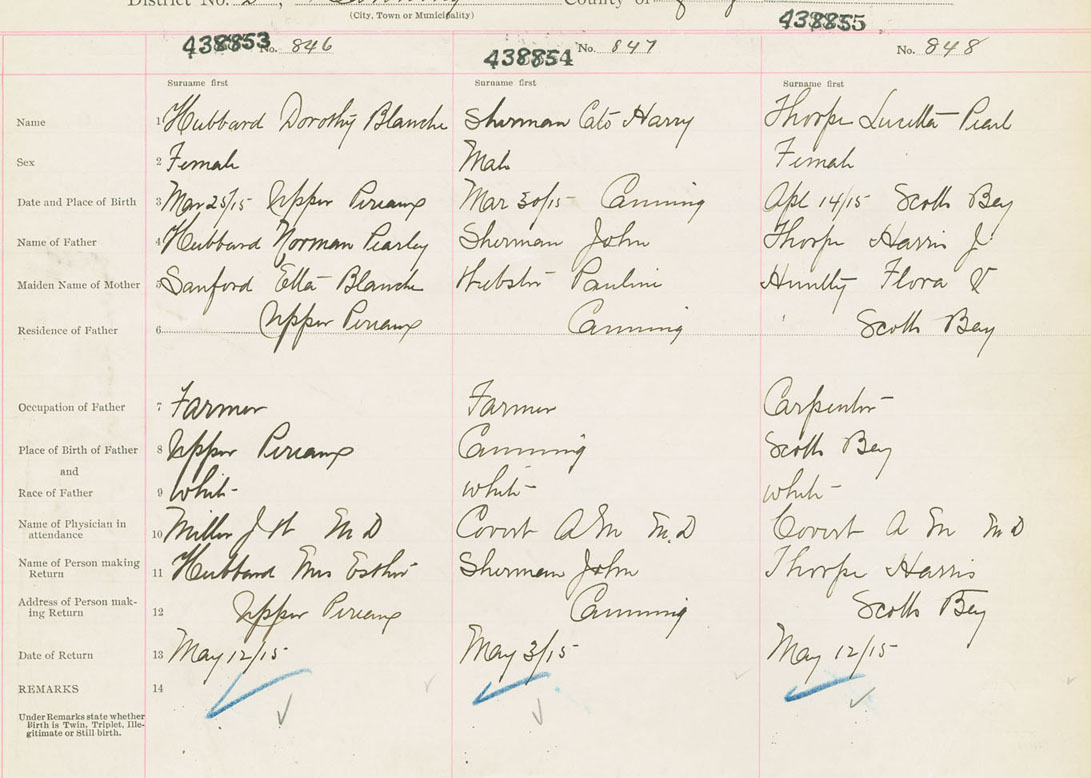 District No. 2, Canning County of
(City, Town or Municipality)
438853 No. 846 438854 No. 847 438855 No. 848
Surname first Surname first Surname first
Name 1 Hubbard Dorothy Blanche Sherman Cato Harry Thorpe Lucilla Pearl
Sex 2 Female Male Female
Date and Place of Birth 3 Mar 25/15 Upper Pereaux Mar 30/15 Canning Apl 14/15 Scotts Bay
Name of Father 4 Hubbard Norman Pearley Sherman John Thorpe Harris J
Maiden Name of Mother 5 Sanford Etta Blanche Webster Pauline Huntly Flora V
Residence of Father 6 Upper Pereaux Canning Scotts Bay
Occupation of Father 7 Farmer Farmer Carpenter
Place of Birth of Father 8 Upper Pereaux Canning Scotts Bay
and
Race of Father 9 White White White
Name of Physician in
attendance 10 Miller J W M D Covert A M M.D Covert A M M D
Name of Person making
Return 11 Hubbard Mrs Esther Sherman John Thorpe Harris
Address of Person mak-
ing Return 12 Upper Pereaux Canning Scotts Bay
Date of Return 13 May 12/15 May 3/15 May 12/15
REMARKS 14
Under Remarks state whether
Birth is Twin, Triplet, Ille-
gitimate or Still birth.